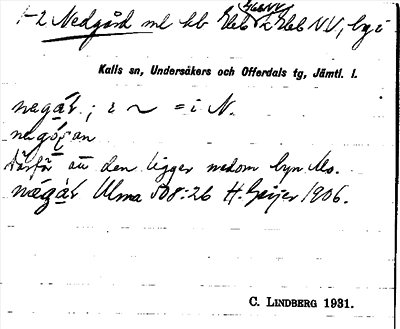 1-2 Nedgård ml hb Ebb & Ebb NV, by i
Kalls sn, Undersåkers och Offerdals tg, Jämtl. l.
negár. ; i ~ = i N.
negǫ́ɽan
Därför att den ligger nedom byn Mo.
nægár Ulma 508:26 H. Geijer 1906.
C. LINDBERG 1931.